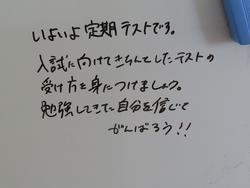 いよいよ定期テストです。
入試に向けてきちんとしたテストの
受け方を身につけましょう。
勉強してきた自分を信じて
がんばろう!!